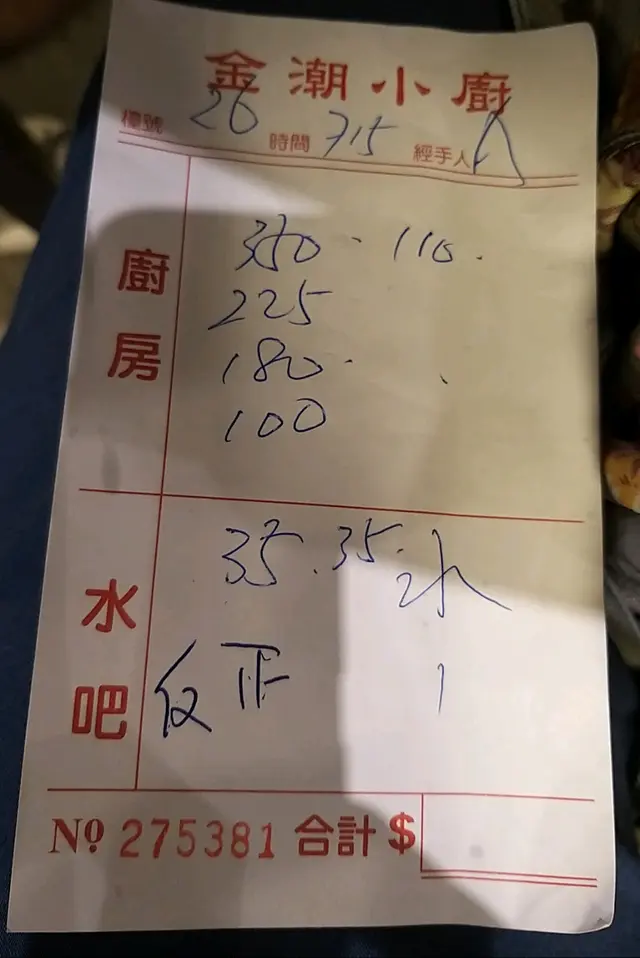 金潮小廚
檯號 26 時間 715 經手人 A
廚房
350 · 110 .
225
180 ·
100
水吧
35 . 35 . 水
正 1
No 275381 合計 $